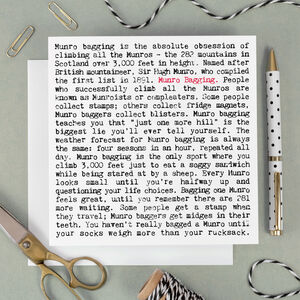 Munro bagging is the absolute obsession of
climbing all the Munros - the 282 mountains in
Scotland over 3,000 feet in height. Named after
British mountaineer, Sir Hugh Munro, who compiled
the first list in 1891. Munro Bagging. People
who successfully climb all the Munros are
known as Munroists or compleaters. Some people
collect stamps; others collect fridge magnets,
Munro baggers collect blisters. Munro bagging
teaches you that "just one more hill" is the
biggest lie you'll ever tell yourself. The
weather forecast for Munro bagging is always
the same: four seasons in an hour, repeated all
day. Munro bagging is the only sport where you
climb 3,000 feet just to eat a soggy sandwich
while being stared at by a sheep. Every Munro
looks small until you're halfway up and
questioning your life choices. Bagging one Munro
feels great, until you remember there are 281
more waiting. Some people get a stamp when
they travel; Munro baggers get midges in their
teeth. You haven't really bagged a Munro until
your socks weigh more than your rucksack.